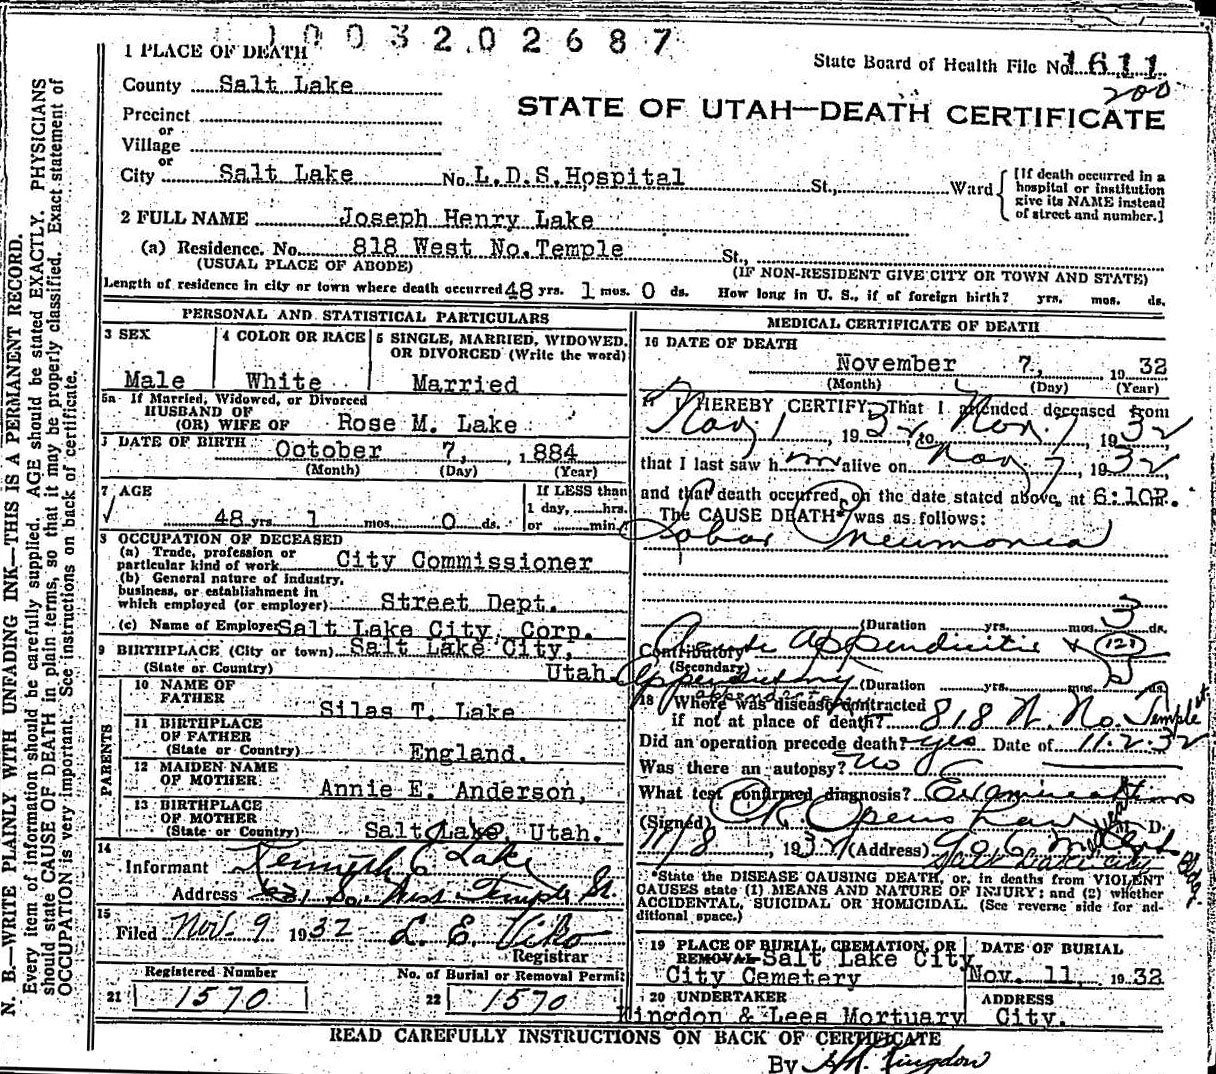 1003202687
1 PLACE OF DEATH
State Board of Health File No. 1611
200
County Salt Lake
STATE OF UTAH—DEATH CERTIFICATE
Precinct
or
Village
or
City Salt Lake No. L.D.S. Hospital St., Ward
[If death occurred in a
hospital or institution
give its NAME instead
of street and number.]
2 FULL NAME Joseph Henry Lake
(a) Residence. No. 818 West No. Temple St.,
(USUAL PLACE OF ABODE) (IF NON-RESIDENT GIVE CITY OR TOWN AND STATE)
Length of residence in city or town where death occurred 48 yrs. 1 mos. 0 ds. How long in U. S., if of foreign birth? yrs. mos. ds.
N. B.—WRITE PLAINLY WITH UNFADING INK—THIS IS A PERMANENT RECORD.
Every item of information should be carefully supplied. AGE should be stated EXACTLY. PHYSICIANS
should state CAUSE OF DEATH in plain terms, so that it may be properly classified. Exact statement of
OCCUPATION is very important. See instructions on back of certificate.
PERSONAL AND STATISTICAL PARTICULARS
3 SEX
Male
4 COLOR OR RACE
White
5 SINGLE, MARRIED, WIDOWED.
OR DIVORCED (Write the word)
Married
5a If Married, Widowed, or Divorced
HUSBAND OF
(OR) WIFE OF Rose M. Lake
DATE OF BIRTH October 7, 1884
(Month) (Day) (Year)
7 AGE
48 yrs. 1 mos. 0 ds.
If LESS than
1 day, hrs.
or min.
8 OCCUPATION OF DECEASED
(a) Trade, profession or
particular kind of work City Commissioner
(b) General nature of industry,
business, or establishment in
which employed (or employer) Street Dept.
(c) Name of Employer Salt Lake City Corp.
9 BIRTHPLACE (City or town) Salt Lake City,
(State or Country) Utah.
PARENTS
10 NAME OF
FATHER Silas T. Lake
11 BIRTHPLACE
OF FATHER
(State or Country) England.
12 MAIDEN NAME
OF MOTHER Annie E. Anderson,
13 BIRTHPLACE
OF MOTHER
(State or Country) Salt Lake, Utah.
14
Informant Kenneth C Lake
Address So. West Temple St.
15
Filed Nov. 9 1932 L. E. Viko
Registrar
Registered Number
21 1570
No. of Burial or Removal Permit
22 1570
MEDICAL CERTIFICATE OF DEATH
16 DATE OF DEATH
November 7, 1932
(Month) (Day) (Year)
17 I HEREBY CERTIFY, That I attended deceased from
Nov. 1, 1932 to Nov. 7 1932
that I last saw him alive on Nov 7, 1932
and that death occurred, on the date stated above, at 6:10P.
The CAUSE DEATH* was as follows:
Lobar Pneumonia
(Duration yrs. mos. 3 ds.
Contributory Acute Appendicitis
(Secondary)
Appendectomy
(Duration yrs. mos. 5 ds.
18 Where was disease contracted
if not at place of death? 818 W. No. Temple St
Did an operation precede death? Yes Date of 11.2.32
Was there an autopsy? No
What test confirmed diagnosis? Examinations
(Signed) M. D.
11/8, 1932 (Address)
Salt Lake City
Bldg.
*State the DISEASE CAUSING DEATH, or, in deaths from VIOLENT
CAUSES state (1) MEANS AND NATURE OF INJURY; and (2) whether
ACCIDENTAL, SUICIDAL OR HOMICIDAL. (See reverse side for ad-
ditional space.)
19 PLACE OF BURIAL, CREMATION, OR
REMOVAL Salt Lake City
City Cemetery
DATE OF BURIAL
Nov. 11, 1932
20 UNDERTAKER
Kingdon & Lees Mortuary
ADDRESS
City.
READ CAREFULLY INSTRUCTIONS ON BACK OF CERTIFICATE
By Kingdon